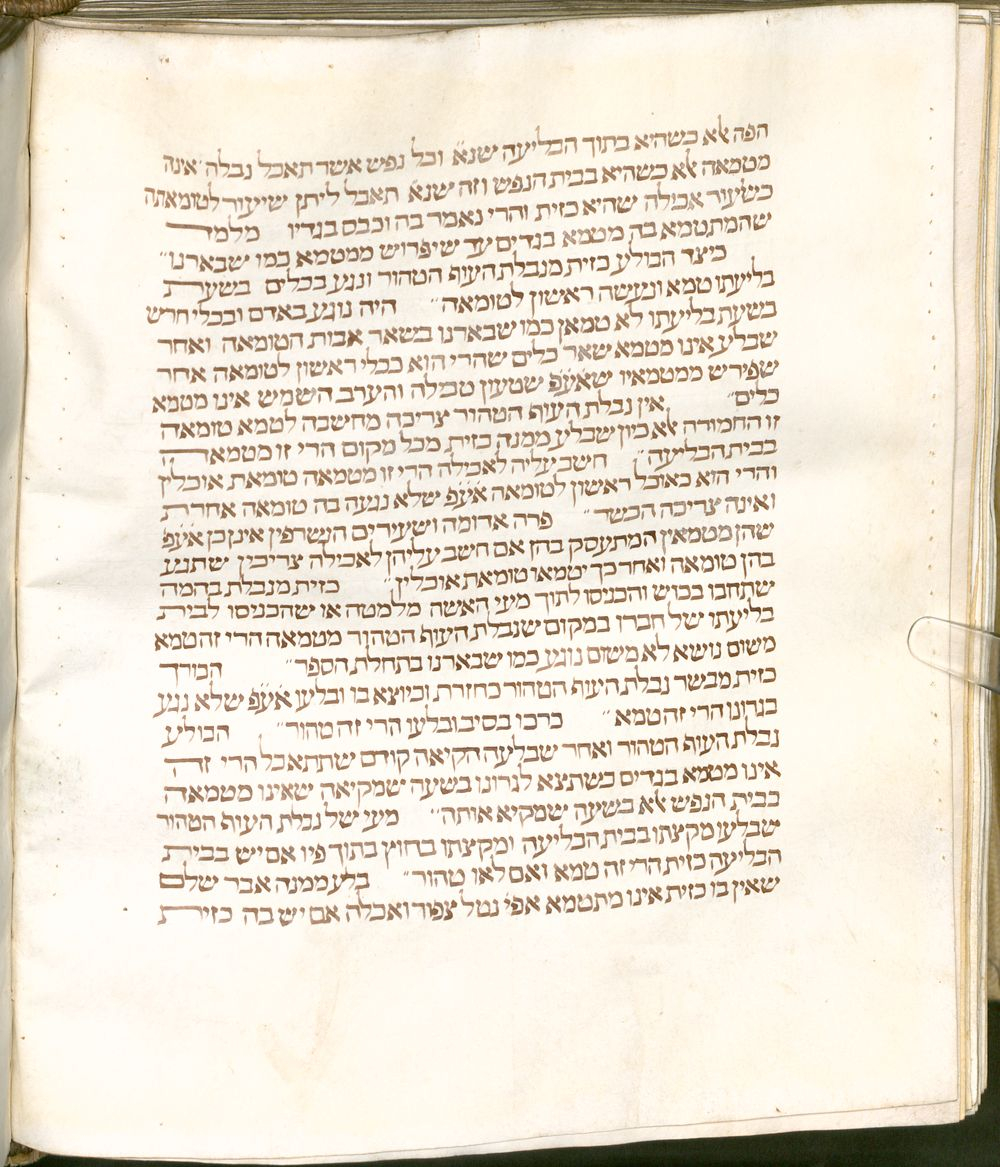 הפה אלא כשהיא בתוך הבליעה שנא׳ וכל נפש אשר תאכל נבלה אינה
מטמאה אלא כשהיא בבית הנפש וזה שנא׳ תאכל ליתן שיעור לטומאתה
כשעור אכילה שהיא כזית והרי נאמר בה וכבס בגדיו מלמד
שהמתטמא בה מטמא בגדים עד שיפרוש ממטמא כמו שבארנו״
כיצד הבולע כזית מנבלת העוף הטהור ונגע בכלים בשעת
בליעתו טמא ונעשה ראשון לטומאה״ היה נוגע באדם ובכלי חרש
בשעת בליעתו לא טמאן כמו שבארנו בשאר אבות הטומאה ואחר
שבלע אינו מטמא שאר כלים שהרי הוא ככלי ראשון לטומאה אחר
שפירש ממטמאיו שאע״פ שטעון טבילה והערב השמש אינו מטמא
כלים״ אין נבלת העוף הטהור צריכה מחשבה לטמא טומאה
זו החמורה אלא כיון שבלע ממנה כזית מכל מקום הרי זו מטמאה
בבית הבליעה״ חשב עליה לאכילה הרי זו מטמאה טומאת אוכלין
והרי הוא כאוכל ראשון לטומאה אע״פ שלא נגעה בה טומאה אחרת
ואינה צריכה הכשר״ פרה אדומה ושעירים הנשרפין אינן כן אע״פ
שהן מטמאין המתעסק בהן אם חשב עליהן לאכילה צריכין שתגע
בהן טומאה ואחר כך יטמאו טומאת אוכלין״ כזית מנבלת בהמה
שתחבו בכוש והכניסו לתוך מעי האשה מלמטה או שהכניסו לבית
בליעתו של חברו במקום שנבלת העוף הטהור מטמאה הרי זה טמא
משום נושא לא משום נוגע כמו שבארנו בתחלת הספר״ הכורך
כזית מבשר נבלת העוף הטהור כחזרת וכיוצא בו ובלעו אע״פ שלא נגע
בגרונו הרי זה טמא״ כרכו בסיב ובלעו הרי זה טהור״ הבולע
נבלת העוף הטהור ואחר שבלעה הקיאה קודם שתתאכל הרי זה
אינו מטמא בגדים כשתצא לגרונו בשעה שמקיאה שאינו מטמאה
בבית הנפש אלא בשעה שמקיא אותה״ מעי של נבלת העוף הטהור
שבלעו מקצתו בבית הבליעה ומקצתו בחוץ בתוך פיו אם יש בבית
הבליעה כזית הרי זה טמא ואם לאו טהור״ בלע ממנה אבר שלם
שאין בו כזית אינו מתטמא אפי׳ נטל צפור ואכלה אם יש בה כזית